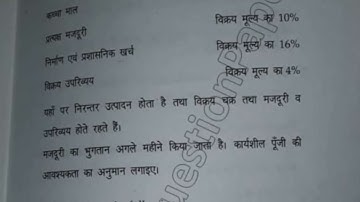 कच्चा माल
प्रत्यक्ष मजदूरी विक्रय मूल्य का 10%
निर्माण एवं प्रशासनिक खर्च विक्रय मूल्य का 16%
विक्रय उपरिव्यय विक्रय मूल्य का 4%
यहाँ पर निरन्तर उत्पादन होता है तथा विक्रय चक्र तथा मजदूरी व
उपरिव्यय होते रहते हैं।
मजदूरी का भुगतान अगले महीने किया जाता है। कार्यशील पूँजी की
आवश्यकता का अनुमान लगाइए।
uestionPape